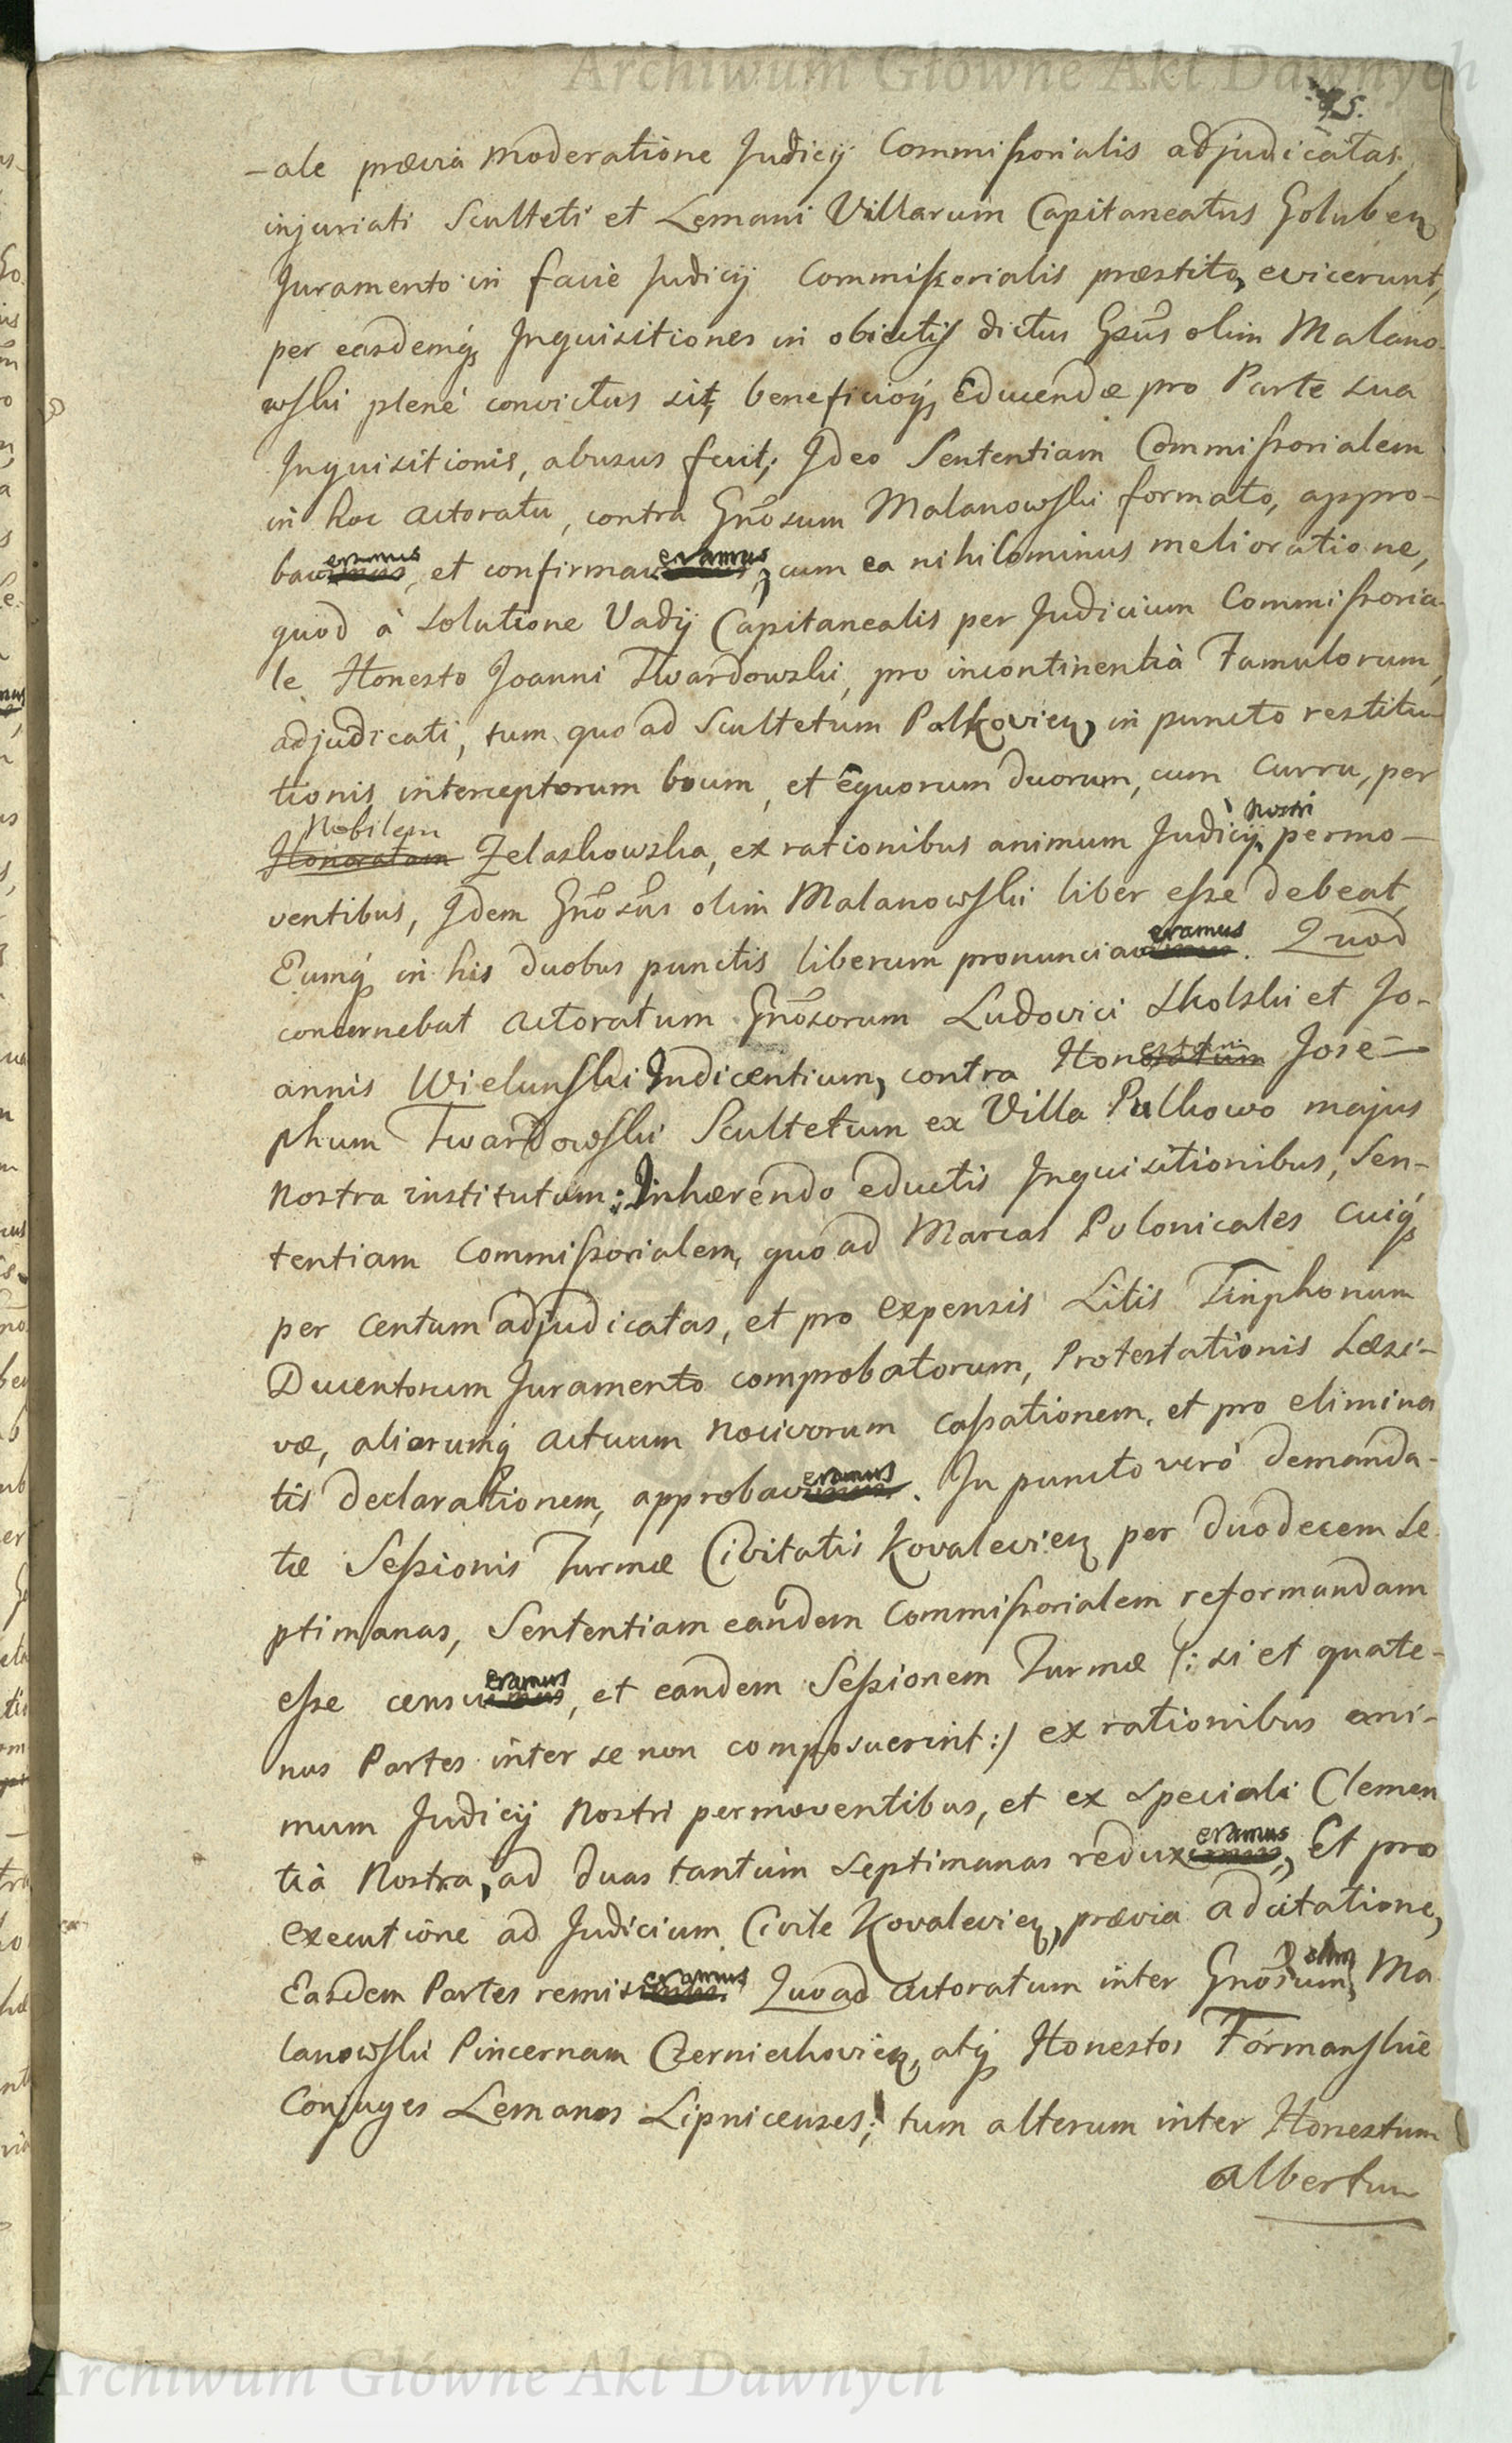 Archiwum Główne Akt Dawnych
95.
-ale prævia moderatione Judicij Commissorialis adjudicatas,
injuriati Sculteti et Lemani Villarum Capitaneatus Goluben
Juramento in facie Judicij Commissorialis præstito, evicerunt,
per easdemq; Inquisitiones in obiectis dictus Gnsus olim Malano-
wski plené convictus sit, beneficioq; Educendæ pro Parte sua
Inquisitionis, abusus fuit; Ideo Sententiam Commissorialem
in hoc actoratu, contra Gnosum Malanowski formato, appro-
baveramus, et confirmaveramus, cum ea nihilominus melioratione,
quod à solutione Vadij Capitanealis per Judicium Commissoria-
le Honesto Joanni Twardowski, pro incontinentia Famulorum,
adjudicati, tum quo ad Scultetum Palkovien, in puncto restitu-
tionis interceptorum boum, et equorum duorum, cum curru, per
Nobilem
Honoratam Zelaskowska, ex rationibus animum Judicij Nostri permo-
ventibus, Idem Gnosus olim Malanowski liber esse debeat,
Eumq; in his duobus punctis liberum pronunciaveramus. Quod
concernebat actoratum Gnosorum Ludovici Skolski et Jo-
annis Wielunski Indicentium, contra Honestum Jose-
phum Twardowski Scultetum ex Villa Pulkowo majus
nostra institutum; Inhærendo eductis Inquisitionibus, Sen-
tentiam Commissorialem, quo ad Marcas Polonicales cuiq;
per centum adjudicatas, et pro expensis Litis Tinphonum
Ducentorum Juramento comprobatorum, Protestationis Læsi-
væ, aliorumq; actuum nocivorum cassationem, et pro elimina
tis declarationem, approbaveramus. In puncto veró demanda-
tæ Sessionis Turmæ Civitatis Kovalevien per duodecem se-
ptimanas, Sententiam eandem Commissorialem reformandam
esse censueramus, et eandem Sessionem Turmæ /: si et quate-
nus Partes inter se non composuerint :/ ex rationibus ani-
mum Judicij Nostri permoventibus, et ex speciali Clemen
tià Nostra, ad duas tantum septimanas reduxeramus, Et pro
executione ad Judicium Civile Kovalevien, prævia adcitatione,
Easdem Partes remiseramus. Quo ad actoratum inter Gnosum olim Ma
lanowski Pincernam Czerniechovien, atq; Honestos Formanskie
Conjuges Lemanos Lipnicenses; tum alterum inter Honestum
Albertum
Archiwum Główne Akt Dawnych